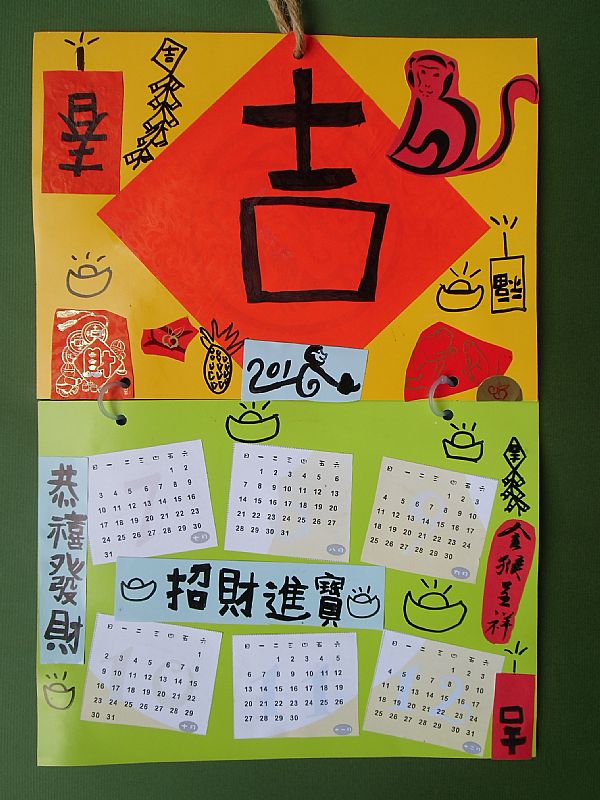 吉
春
吉
福
財
201
恭禧發財
日 一 二 三 四 五 六
1 2
3 4 5 6 7 8 9
10 11 12 13 14 15 16
17 18 19 20 21 22 23
24 25 26 27 28 29 30
31
七月
日 一 二 三 四 五 六
1 2 3 4 5 6
7 8 9 10 11 12 13
14 15 16 17 18 19 20
21 22 23 24 25 26 27
28 29 30 31
八月
日 一 二 三 四 五 六
1 2 3
4 5 6 7 8 9 10
11 12 13 14 15 16 17
18 19 20 21 22 23 24
25 26 27 28 29 30
九月
金猴呈祥
招財進寶
日 一 二 三 四 五 六
1
2 3 4 5 6 7 8
9 10 11 12 13 14 15
16 17 18 19 20 21 22
23 24 25 26 27 28 29
30 31
十月
日 一 二 三 四 五 六
1 2 3 4 5
6 7 8 9 10 11 12
13 14 15 16 17 18 19
20 21 22 23 24 25 26
27 28 29 30
十一月
日 一 二 三 四 五 六
1 2 3
4 5 6 7 8 9 10
11 12 13 14 15 16 17
18 19 20 21 22 23 24
25 26 27 28 29 30 31
十二月
吉